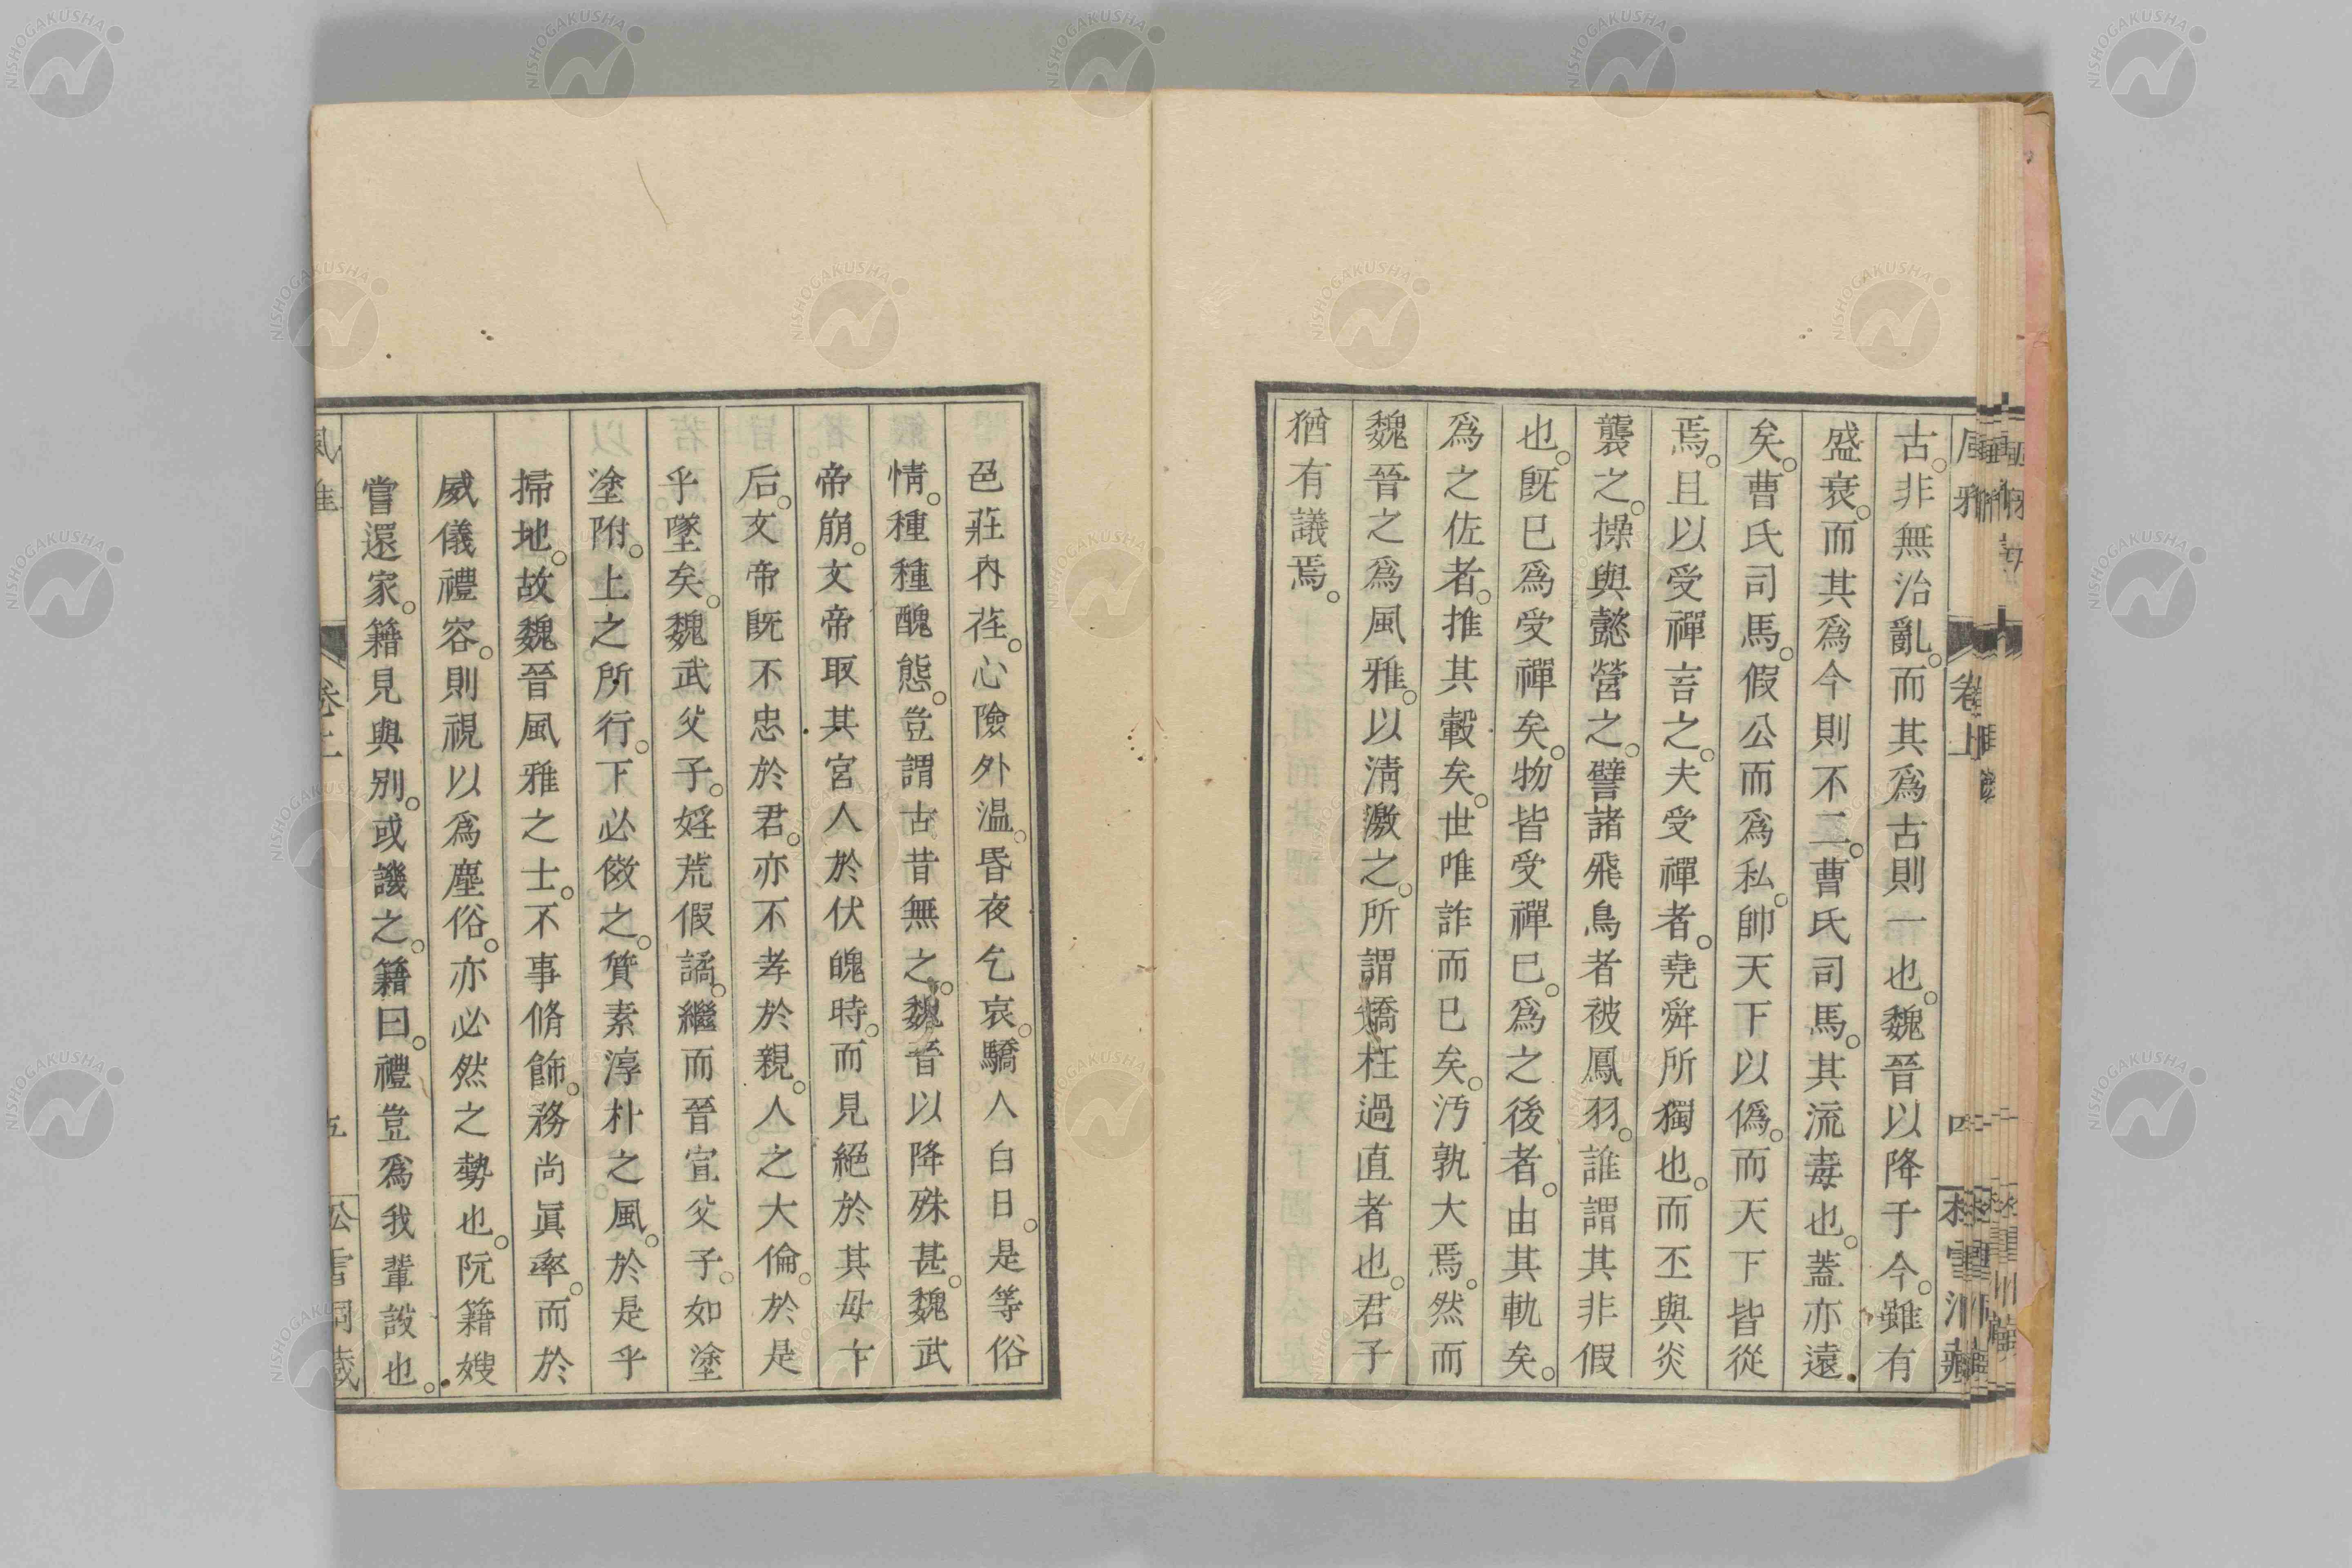 古。非無治亂。而其爲古則一也。魏晉以降于今。雖有
盛衰。而其爲今則不二。曹氏司馬。其流毒也。蓋亦遠
矣。曹氏司馬。假公而爲私。帥天下以僞。而天下皆從
焉。且以受禪言之。夫受禪者。堯舜所獨也。而丕與炎
襲之。操與懿營之。譬諸飛鳥者被鳳羽。誰謂其非假
也。既已爲受禪矣。物皆受禪已。爲之後者。由其軌矣。
爲之佐者。推其轂矣。世唯詐而已矣。汚孰大焉。然而
魏晉之爲風雅。以淸激之。所謂矯枉過直者也。君子
猶有議焉。
色莊內荏。心險外温。昏夜乞哀。驕人白日。是等俗
情。種種醜態。豈謂古昔無之。魏晉以降殊甚。魏武
帝崩。文帝取其宮人於伏魄時。而見絕於其母卞
后。文帝既不忠於君。亦不孝於親。人之大倫。於是
乎墜矣。魏武父子。婬荒假譎。繼而晉宣父子。如塗
塗附。上之所行。下必傚之。質素淳朴之風。於是乎
掃地。故魏晉風雅之士。不事脩飾。務尚眞率。而於
威儀禮容。則視以爲塵俗。亦必然之勢也。阮籍嫂
嘗還家。籍見與別。或譏之。籍曰。禮豈爲我輩設也。
卷上
NISHOGAKUSHA